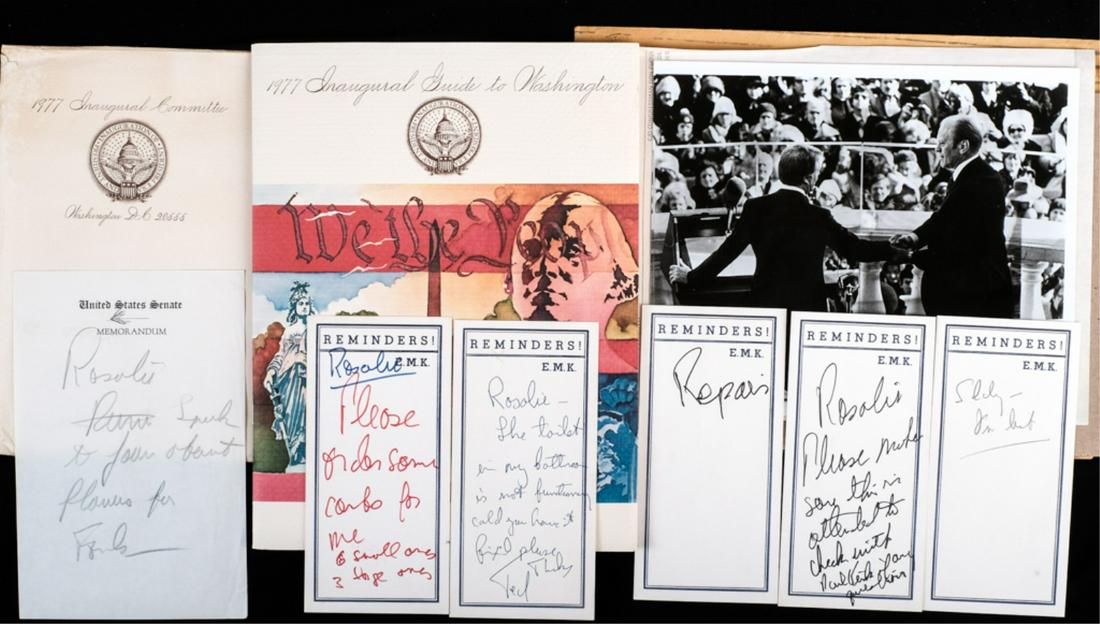 1977 Inaugural Committee
Washington D.C. 20555
1977 Inaugural Guide to Washington
We the Peop
United States Senate
MEMORANDUM
Rosalie
Speak
to Joan about
flowers for
REMINDERS!
E.M.K.
Rosalie
Please
order some
combs for
me
6 small ones
3 large ones
REMINDERS!
E.M.K.
Rosalie –
The toilet
in my bathroom
is not functioning
could you have it
fixed please
Thanks
Ted
REMINDERS!
E.M.K.
Repairs
REMINDERS!
E.M.K.
Rosalie
Please make
sure this is
attended to
check with
if any
question
REMINDERS!
E.M.K.
I'm out